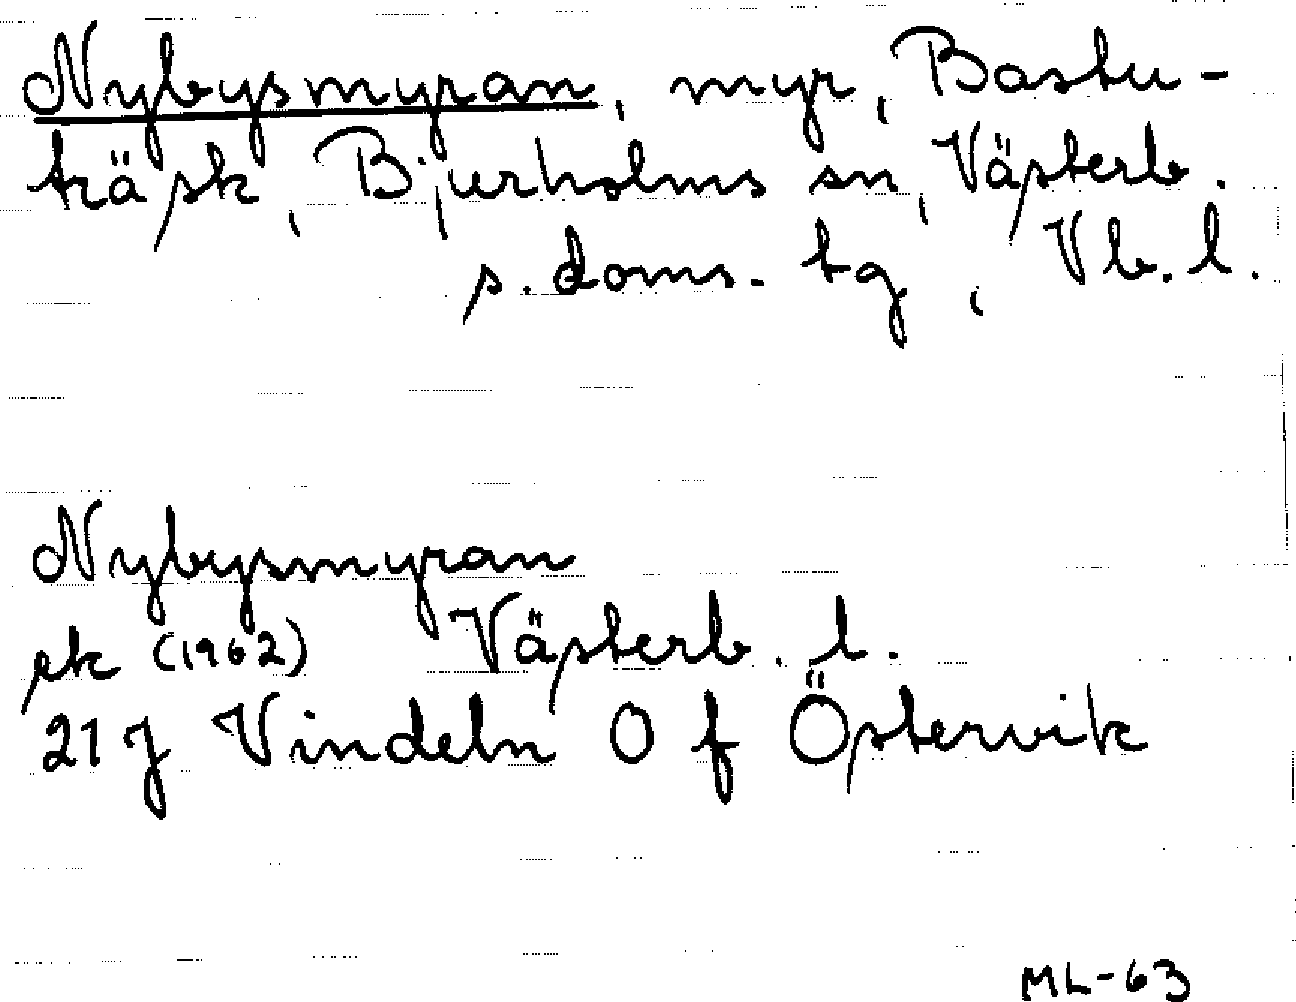 Nybysmyran, myr, Bastu-
träsk, Bjurholms sn, Västerb.
s. doms. tg, Vb. l.
Nybysmyran
ek (1962) Västerb. l.
21 J Vindeln O f Östervik
ML-63